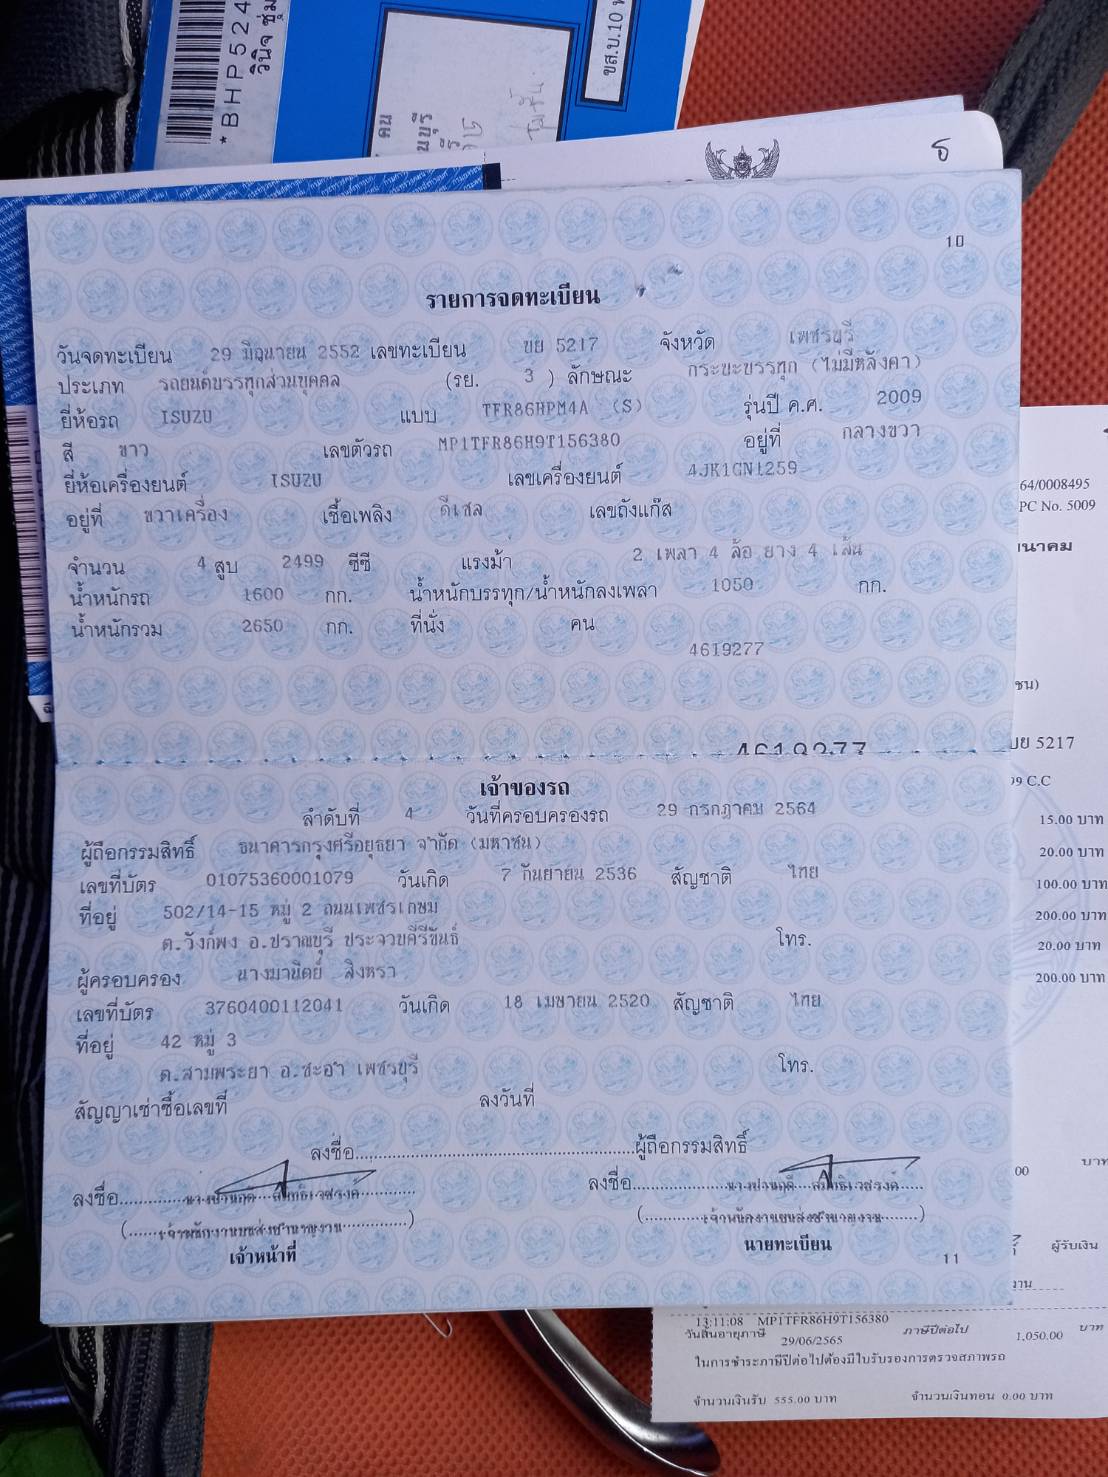 *BHP524
วินิจ ชุ่ม
ขส.บ.10
คน
ธ
10
รายการจดทะเบียน
วันจดทะเบียน 29 มิถุนายน 2552 เลขทะเบียน บย 5217 จังหวัด เพชรบุรี
ประเภท รถยนต์บรรทุกส่วนบุคคล (รย. 3 ) ลักษณะ กระบะบรรทุก (ไม่มีหลังคา)
ยี่ห้อรถ ISUZU แบบ TFR86HPM4A (S) รุ่นปี ค.ศ. 2009
สี ขาว เลขตัวรถ MP1TFR86H9T156380 อยู่ที่ กลางขวา
ยี่ห้อเครื่องยนต์ ISUZU เลขเครื่องยนต์ 4JK1GN1259
อยู่ที่ ขวาเครื่อง เชื้อเพลิง ดีเซล เลขถังแก๊ส
จำนวน 4 สูบ 2499 ซีซี แรงม้า 2 เพลา 4 ล้อ ยาง 4 เส้น
น้ำหนักรถ 1600 กก. น้ำหนักบรรทุก/น้ำหนักลงเพลา 1050 กก.
น้ำหนักรวม 2650 กก. ที่นั่ง คน
4619277
4619277
เจ้าของรถ
ลำดับที่ 4 วันที่ครอบครองรถ 29 กรกฎาคม 2564
ผู้ถือกรรมสิทธิ์ ธนาคารกรุงศรีอยุธยา จำกัด (มหาชน)
เลขที่บัตร 01075360001079 วันเกิด 7 กันยายน 2536 สัญชาติ ไทย
ที่อยู่ 502/14-15 หมู่ 2 ถนนเพชรเกษม
ต.วังก์พง อ.ปราณบุรี ประจวบคีรีขันธ์ โทร.
ผู้ครอบครอง นางมานิตย์ สิงหรา
เลขที่บัตร 3760400112041 วันเกิด 18 เมษายน 2520 สัญชาติ ไทย
ที่อยู่ 42 หมู่ 3
ต.สามพระยา อ.ชะอำ เพชรบุรี โทร.
สัญญาเช่าซื้อเลขที่ ลงวันที่
ลงชื่อ ผู้ถือกรรมสิทธิ์
ลงชื่อ ลงชื่อ
(เจ้าพนักงานขนส่งชำนาญงาน) (เจ้าพนักงานขนส่งชำนาญงาน)
เจ้าหน้าที่ นายทะเบียน
11
64/0008495
PC No. 5009
นาคม
ชน)
บย 5217
99 C.C
15.00 บาท
20.00 บาท
100.00 บาท
200.00 บาท
20.00 บาท
200.00 บาท
00 บาท
ผู้รับเงิน
งาน
13:11:08 MP1TFR86H9T156380
วันสิ้นอายุภาษี 29/06/2565 ภาษีปีต่อไป 1,050.00 บาท
ในการชำระภาษีปีต่อไปต้องมีใบรับรองการตรวจสภาพรถ
จำนวนเงินรับ 555.00 บาท จำนวนเงินทอน 0.00 บาท